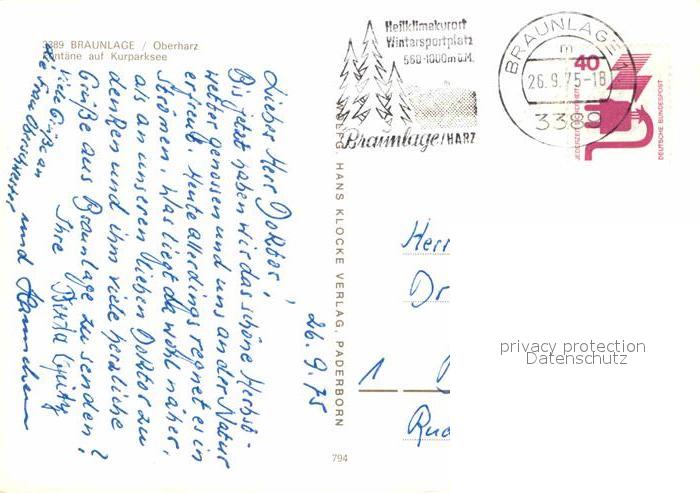 3389 BRAUNLAGE / Oberharz
Fontäne auf Kurparksee
Heilklimakurort
Wintersportplatz
560-1000m ü.M.
Braunlage/HARZ
BRAUNLAGE 1
m
26.9.75-18
3389
40
JEDERZEIT SICHERHEIT
DEUTSCHE BUNDESPOST
HANS KLOCKE VERLAG, PADERBORN
26.9.75
Lieber Herr Doktor,
Bis jetzt haben wir das schöne Herbst-
wetter genossen und uns an der Natur
erfreut. Heute allerdings regnet es in
Strömen. Was liegt da wohl näher,
als an unseren lieben Doktor zu
denken und ihm viele herzliche
Grüße aus Braunlage zu senden?
Ihre Berta
und Hannchen
Viele Grüße an
Frau
Herr
Dr
1
794
privacy protection
Datenschutz